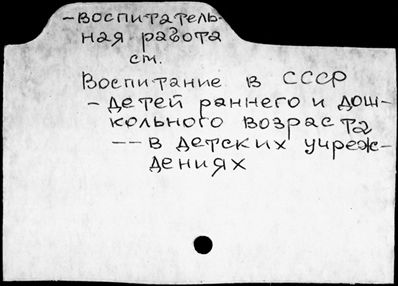 -Воспитатель-
ная работа
см.
Воспитание в СССР
- детей раннего и дош-
кольного возраста
-- в детских учреж-
дениях